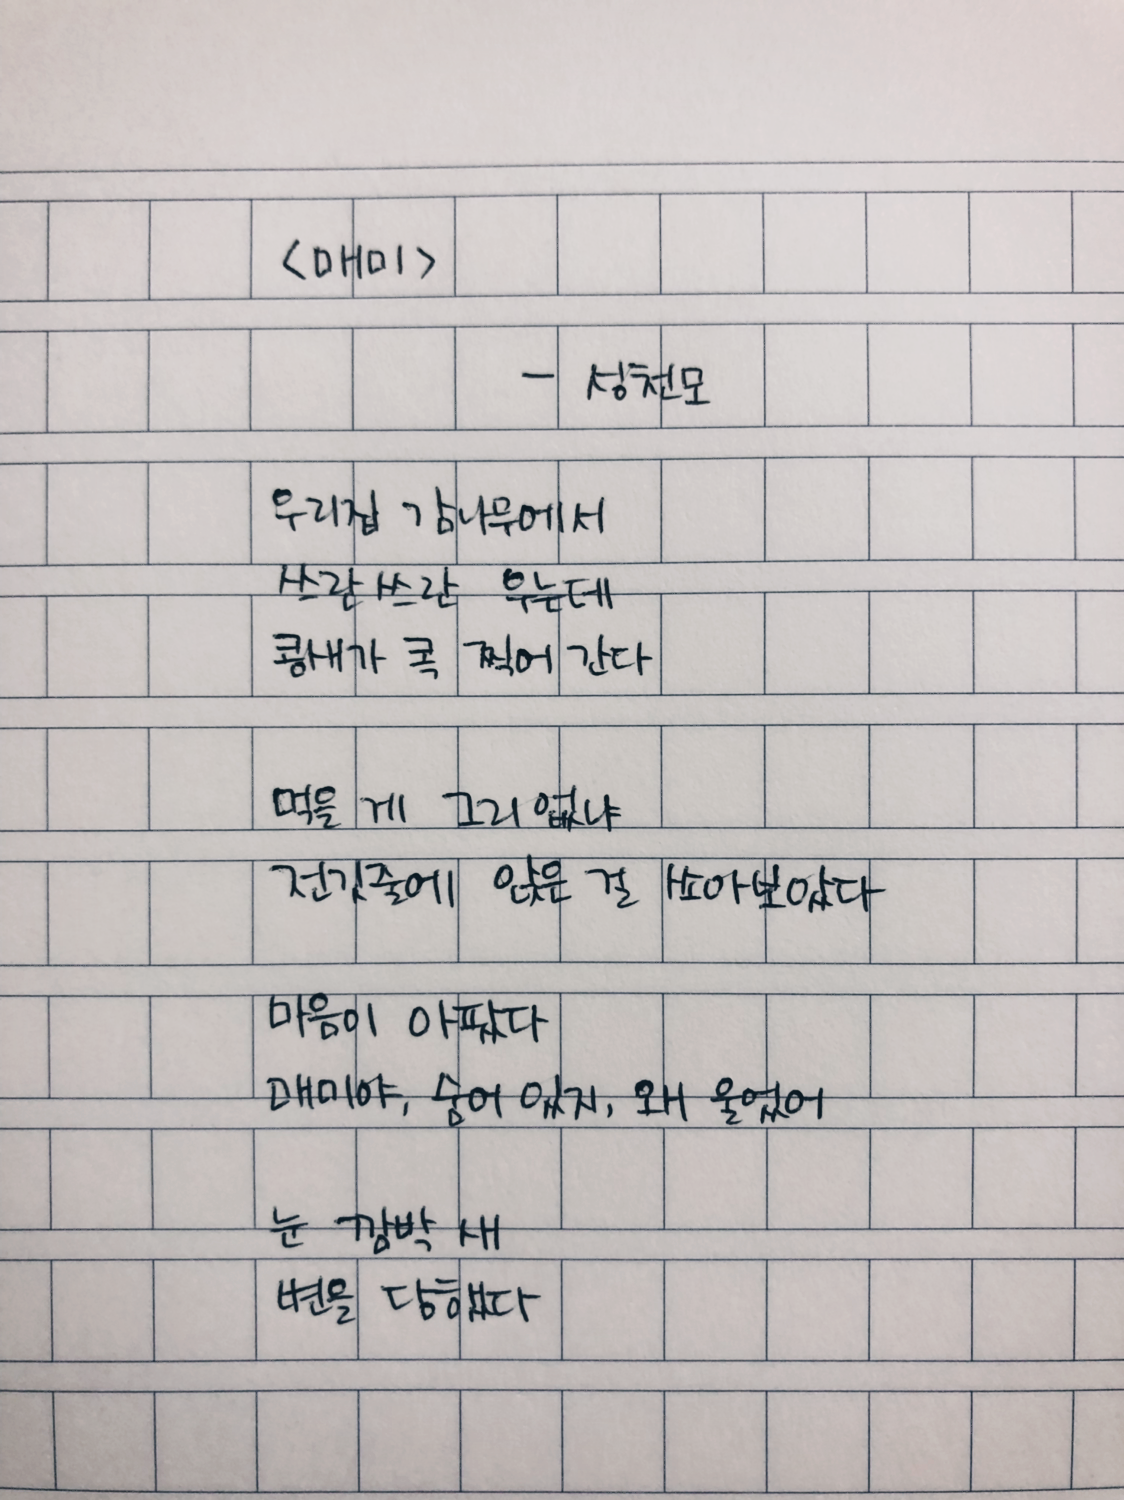 <매미>
- 성천모
우리집 감나무에서
쓰란쓰란 우는데
콩새가 콕 찍어 간다
먹을 게 그리 없냐
전깃줄에 앉은 걸 쏘아보았다
마음이 아팠다
매미야, 숨어 있지, 왜 울었어
눈 깜박 새
변을 당했다